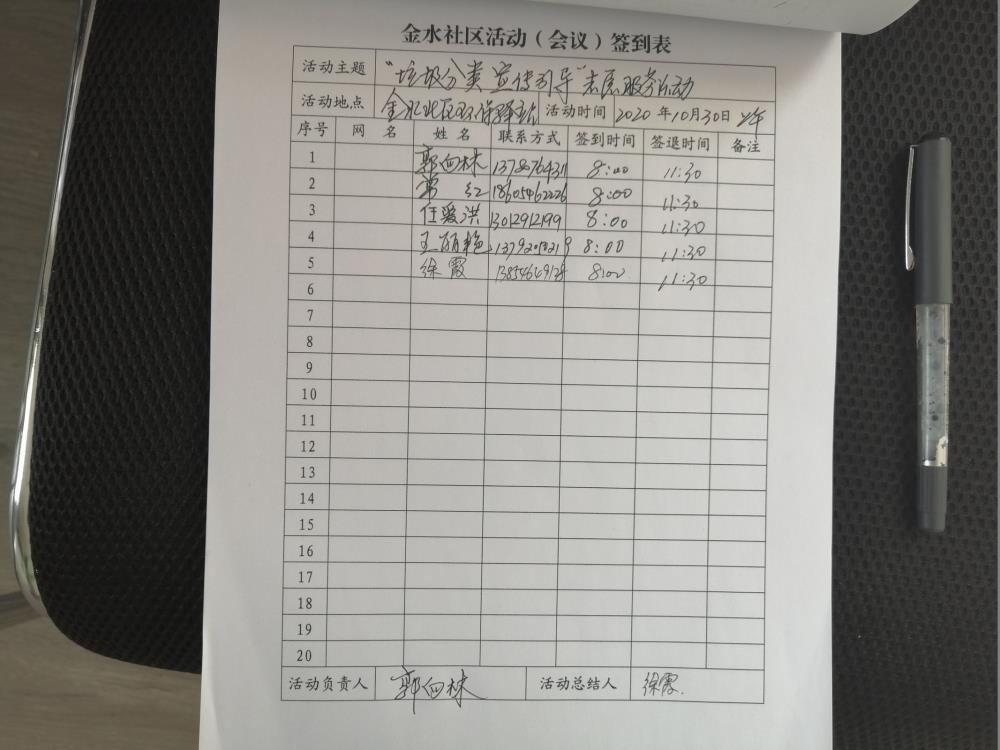 金水社区活动（会议）签到表
活动主题 “垃圾分类宣传引导”志愿服务活动
活动地点 金水社区环保驿站 活动时间 2020年10月30日 上午
序号 网名 姓名 联系方式 签到时间 签退时间 备注
1 郭向林 8:00 11:30
2 常红 18605462226 8:00 11:30
3 任爱洪 13012912199 8:00 11:30
4 王丽艳 8:00 11:30
5 徐霞 13854649128 8:00 11:30
6
7
8
9
10
11
12
13
14
15
16
17
18
19
20
活动负责人 郭向林 活动总结人 徐霞.